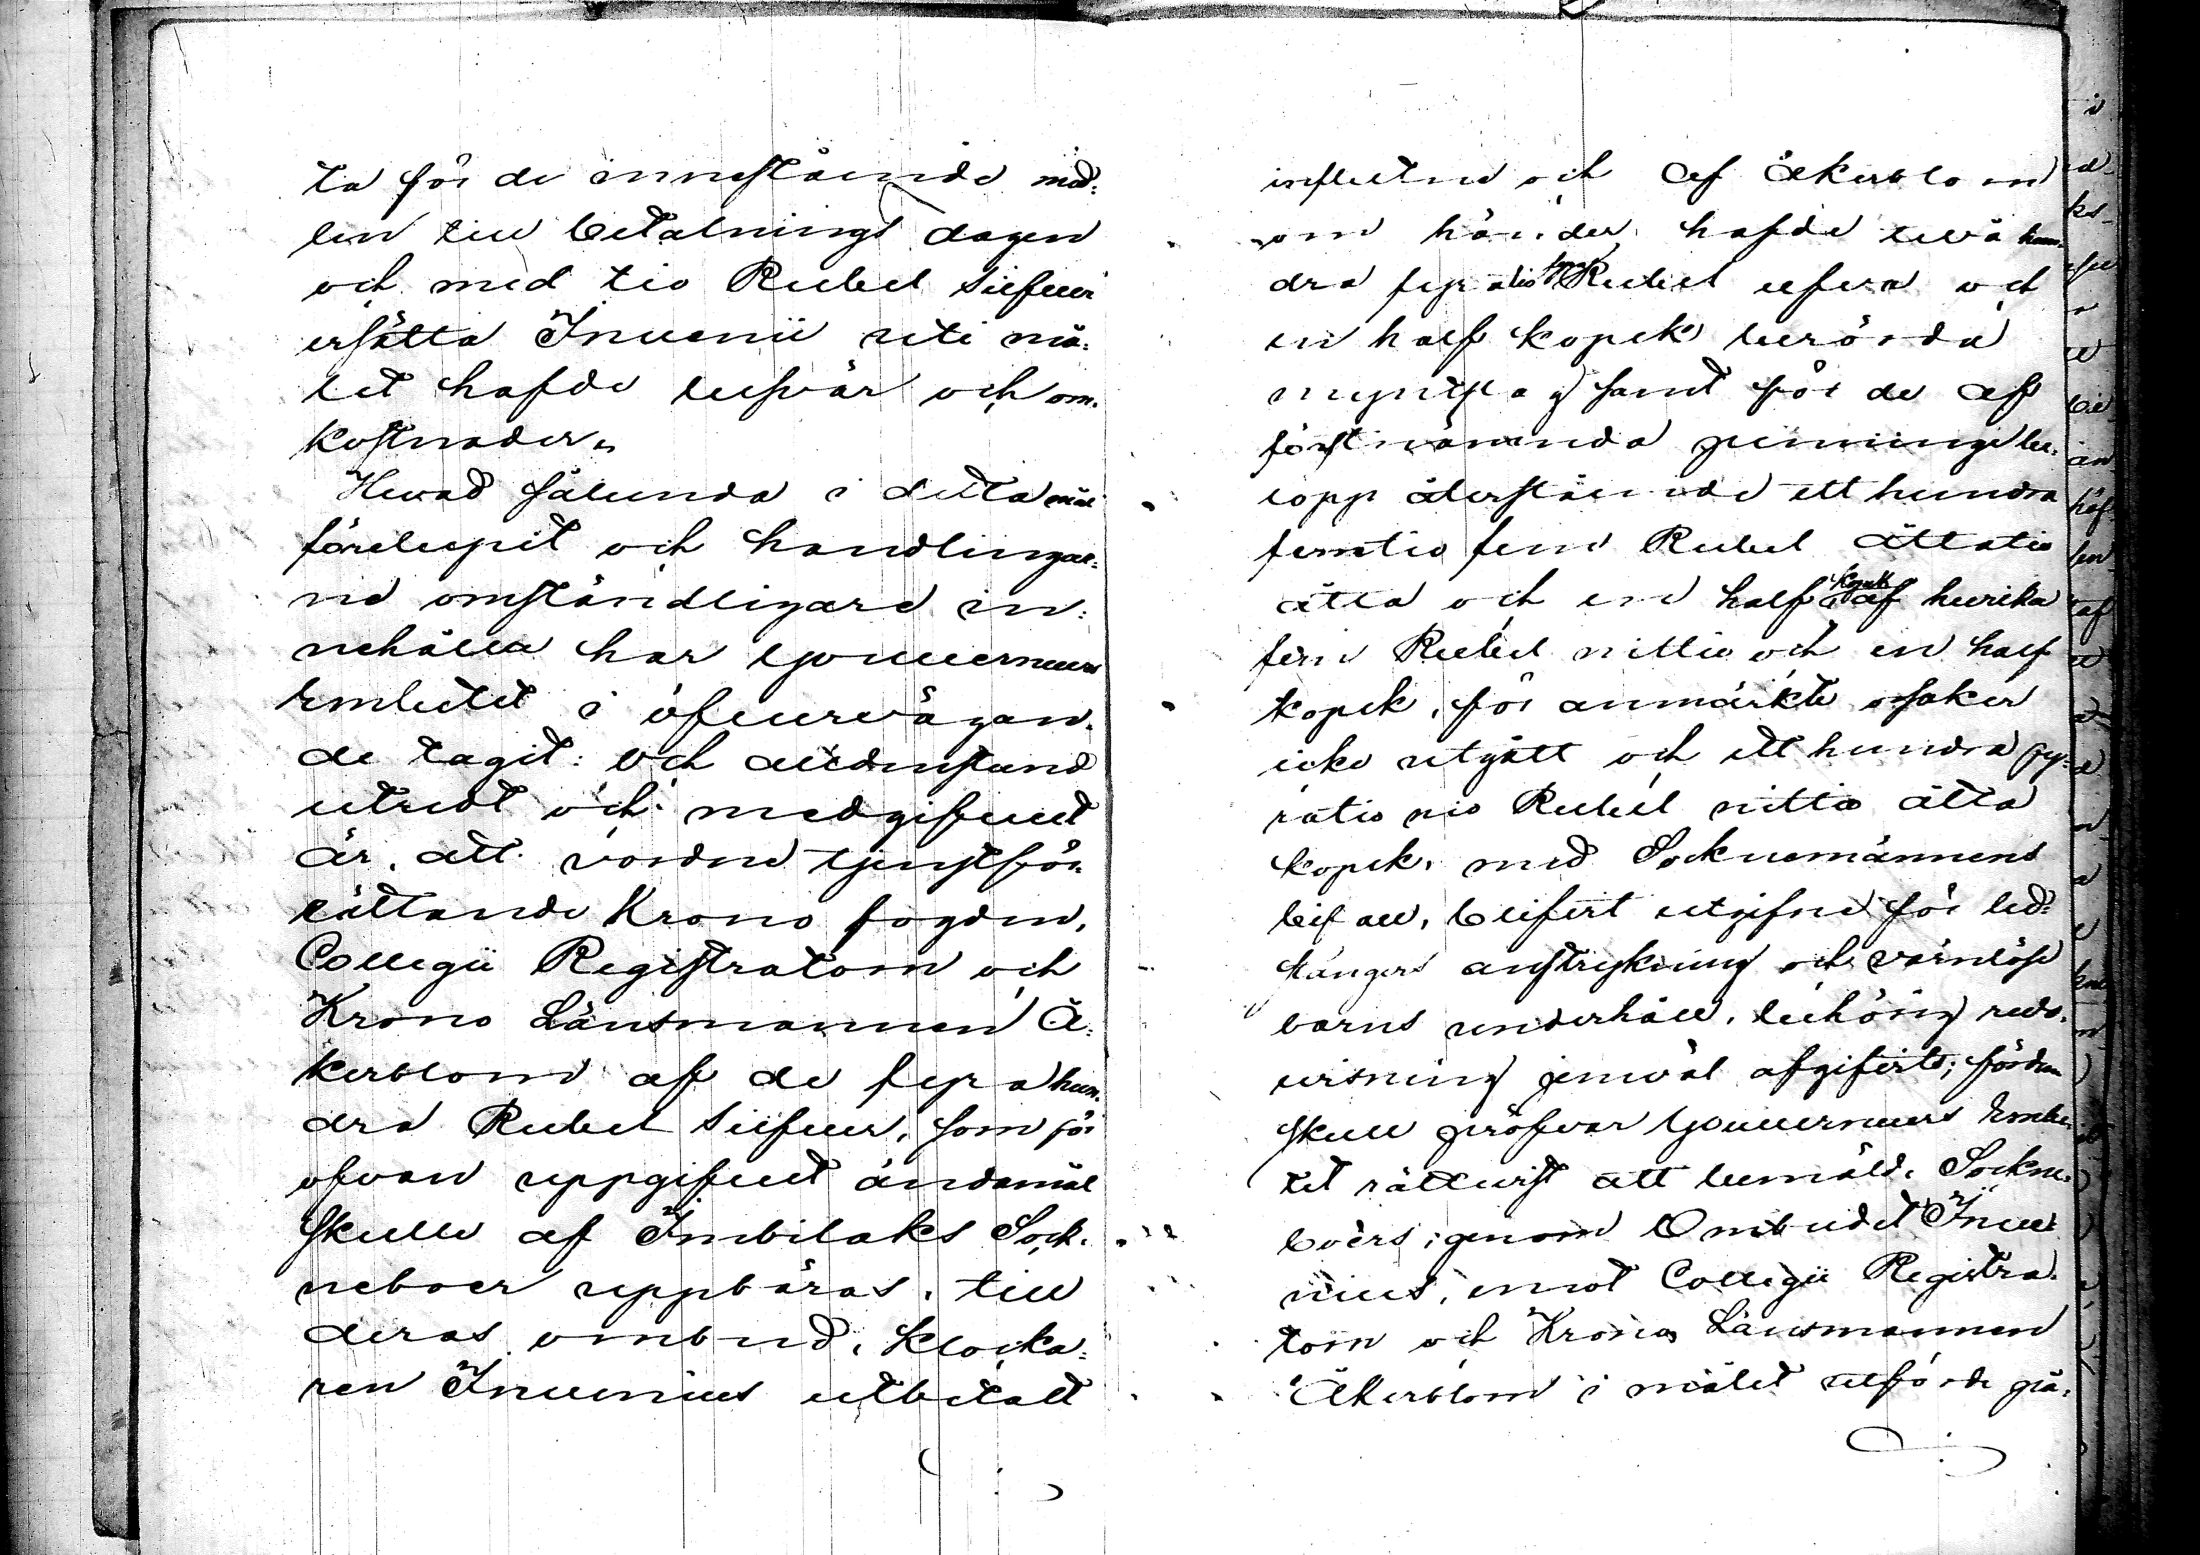 ta för de innestående med-
len till betalnings dagen
och med tio Rubel Silfver
ersätta Inuenii uti må-
let hafde besvär och om-
kostnader.
Hwad sålunda i detta mål
förelupit och handlingar-
ne omständligare in-
nehålla har Gouverneurs
Embetet i öfwerwägan-
de tagit: Och alldenstund
utredt och medgifwet
är, att vordne tjenstför-
rättande Krono fogden,
Collegii Registratorn och
Krono Länsmannen Å-
kerblom af de fyra hun-
dra Rubel Silfwer, som för
ofvan uppgifwet ändamål
skulle af Imbilaks Sock-
neboer uppbäras, till
deras ombud, Klocka-
ren Inuenius utbetalt
influtne och af Åkerblom
om händer hafde twå hun-
dra fyratio fyra Rubel elfva och
en half kopek berörda
myntslag samt för de af
först nämnda penninge be-
lopp återstående ett hundra
femtio fem Rubel åttatio
åtta och en half kopek af hwilka
fem Rubel nittio och en half
kopek, för anmärkte orsaker
icke utgått och ett hundra fy-
ratio nio Rubel nittio åtta
kopek, med Socknemännens
bifall, blifvit utgifne för led-
stängers anstrykning och värnlöse
barns underhåll, behörig redo-
wisning jemväl afgifvit; fördenn
skull pröfvar Gouverneurs Embe-
tet rättvist att bemälde Sockne-
boers, genom Ombudet Inue-
nius, emot Collegii Registra-
torn och Krono Länsmannen
Åkerblom i målet utförde på-